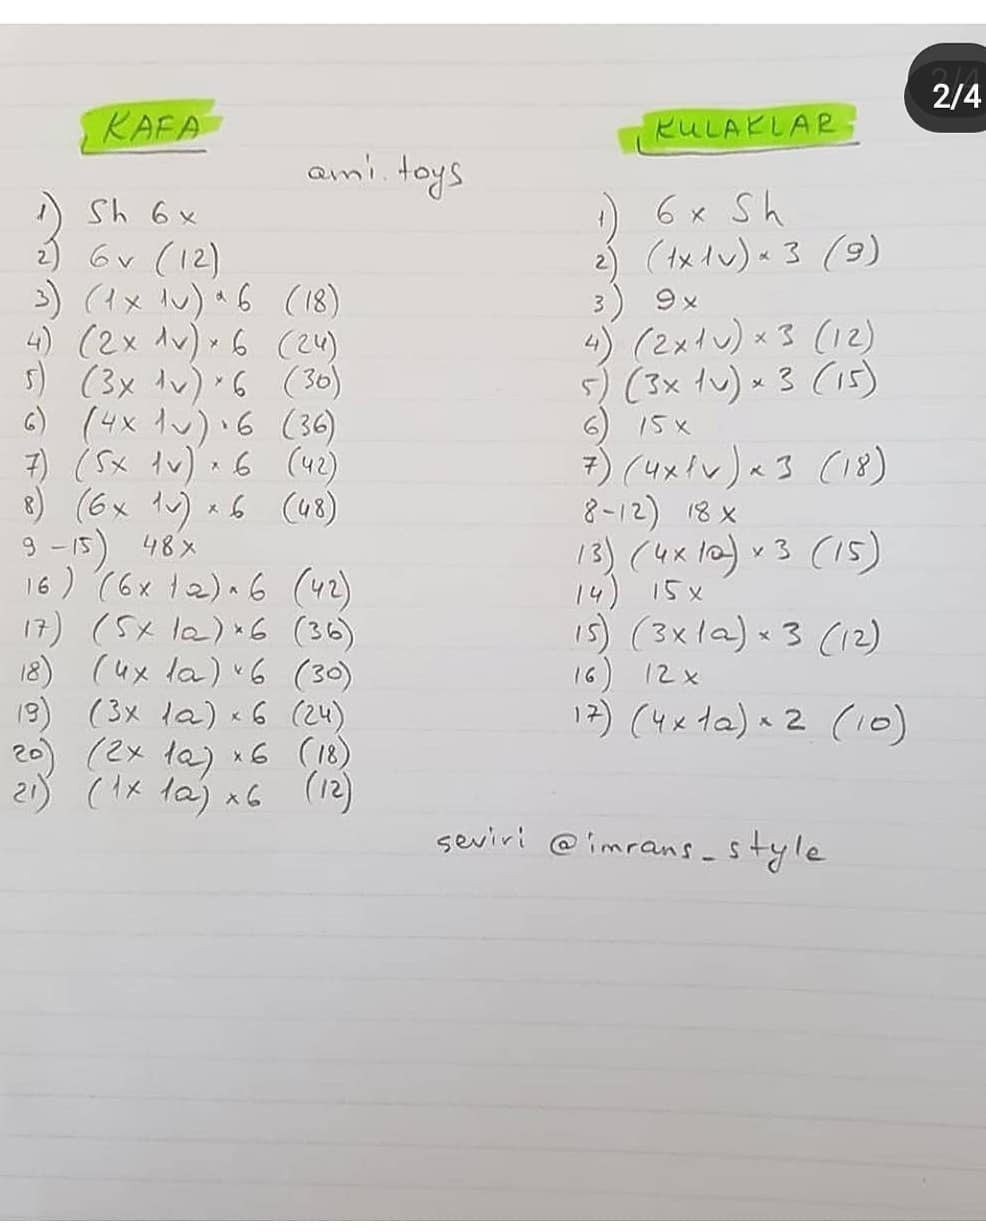 2/4
KAFA
ami.toys
1) Sh 6x
2) 6v (12)
3) (1x 1v) x 6 (18)
4) (2x 1v) x 6 (24)
5) (3x 1v) x 6 (30)
6) (4x 1v) x 6 (36)
7) (5x 1v) x 6 (42)
8) (6x 1v) x 6 (48)
9-15) 48x
16) (6x 1a) x 6 (42)
17) (5x 1a) x 6 (36)
18) (4x 1a) x 6 (30)
19) (3x 1a) x 6 (24)
20) (2x 1a) x 6 (18)
21) (1x 1a) x 6 (12)
KULAKLAR
1) 6x Sh
2) (1x1v) x 3 (9)
3) 9x
4) (2x1v) x 3 (12)
5) (3x 1v) x 3 (15)
6) 15x
7) (4x1v) x 3 (18)
8-12) 18x
13) (4x 1a) x 3 (15)
14) 15x
15) (3x1a) x 3 (12)
16) 12x
17) (4x1a) x 2 (10)
seviri @imrans_style